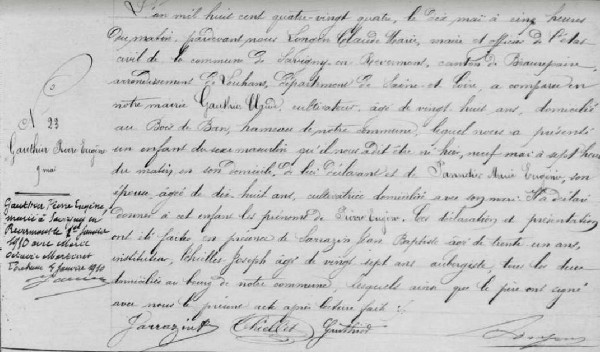 L'an mil huit cent quatre vingt quatre, le dix mai à cinq heures
Du matin, pardevant nous Longin Claude Marie, maire et officier de l'état
civil de la commune de Savigny-en-Revermont, canton de Beaurepaire,
arrondissement de Louhans, Département de Saône et Loire, a comparu en
notre mairie Gauthier cultivateur, âgé de vingt huit ans, domicilié
au Bois de Ban, hameau de notre commune, lequel nous a présenté
un enfant du sexe masculin qu'il nous a dit être né hier, neuf mai à sept heures
du matin, en son domicile, de lui déclarant et de Marie Eugénie, son
épouse âgée de dix huit ans, cultivatrice domiciliée avec son mari. Il a déclaré
donner à cet enfant les prénoms de Pierre Eugène. Ces déclaration et présentation
ont été faites en présence de Sarrazin Jean Baptiste âgé de trente cinq ans,
instituteur, Joseph âgé de vingt sept ans aubergiste, tous les deux
domiciliés au bourg de notre commune, lesquels ainsi que le père ont signé
avec nous le présent acte après lecture faite.
Sarrazin Gauthier
N 23
Gauthier Pierre Eugène
9 mai
Gauthier Pierre Eugène,
marié à Savigny en
Revermont le janvier
1910 avec Marie
janvier 1910